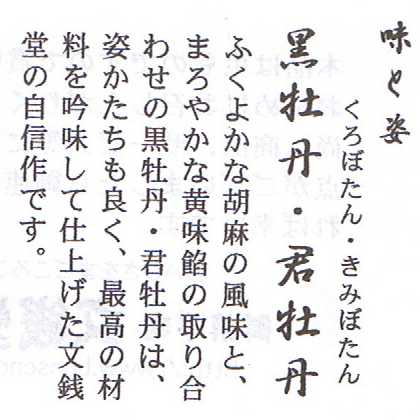 味と姿
くろぼたん・きみぼたん
黒牡丹・君牡丹
ふくよかな胡麻の風味と、
まろやかな黄味餡の取り合
わせの黒牡丹・君牡丹は、
姿かたちも良く、最高の材
料を吟味して仕上げた文銭
堂の自信作です。